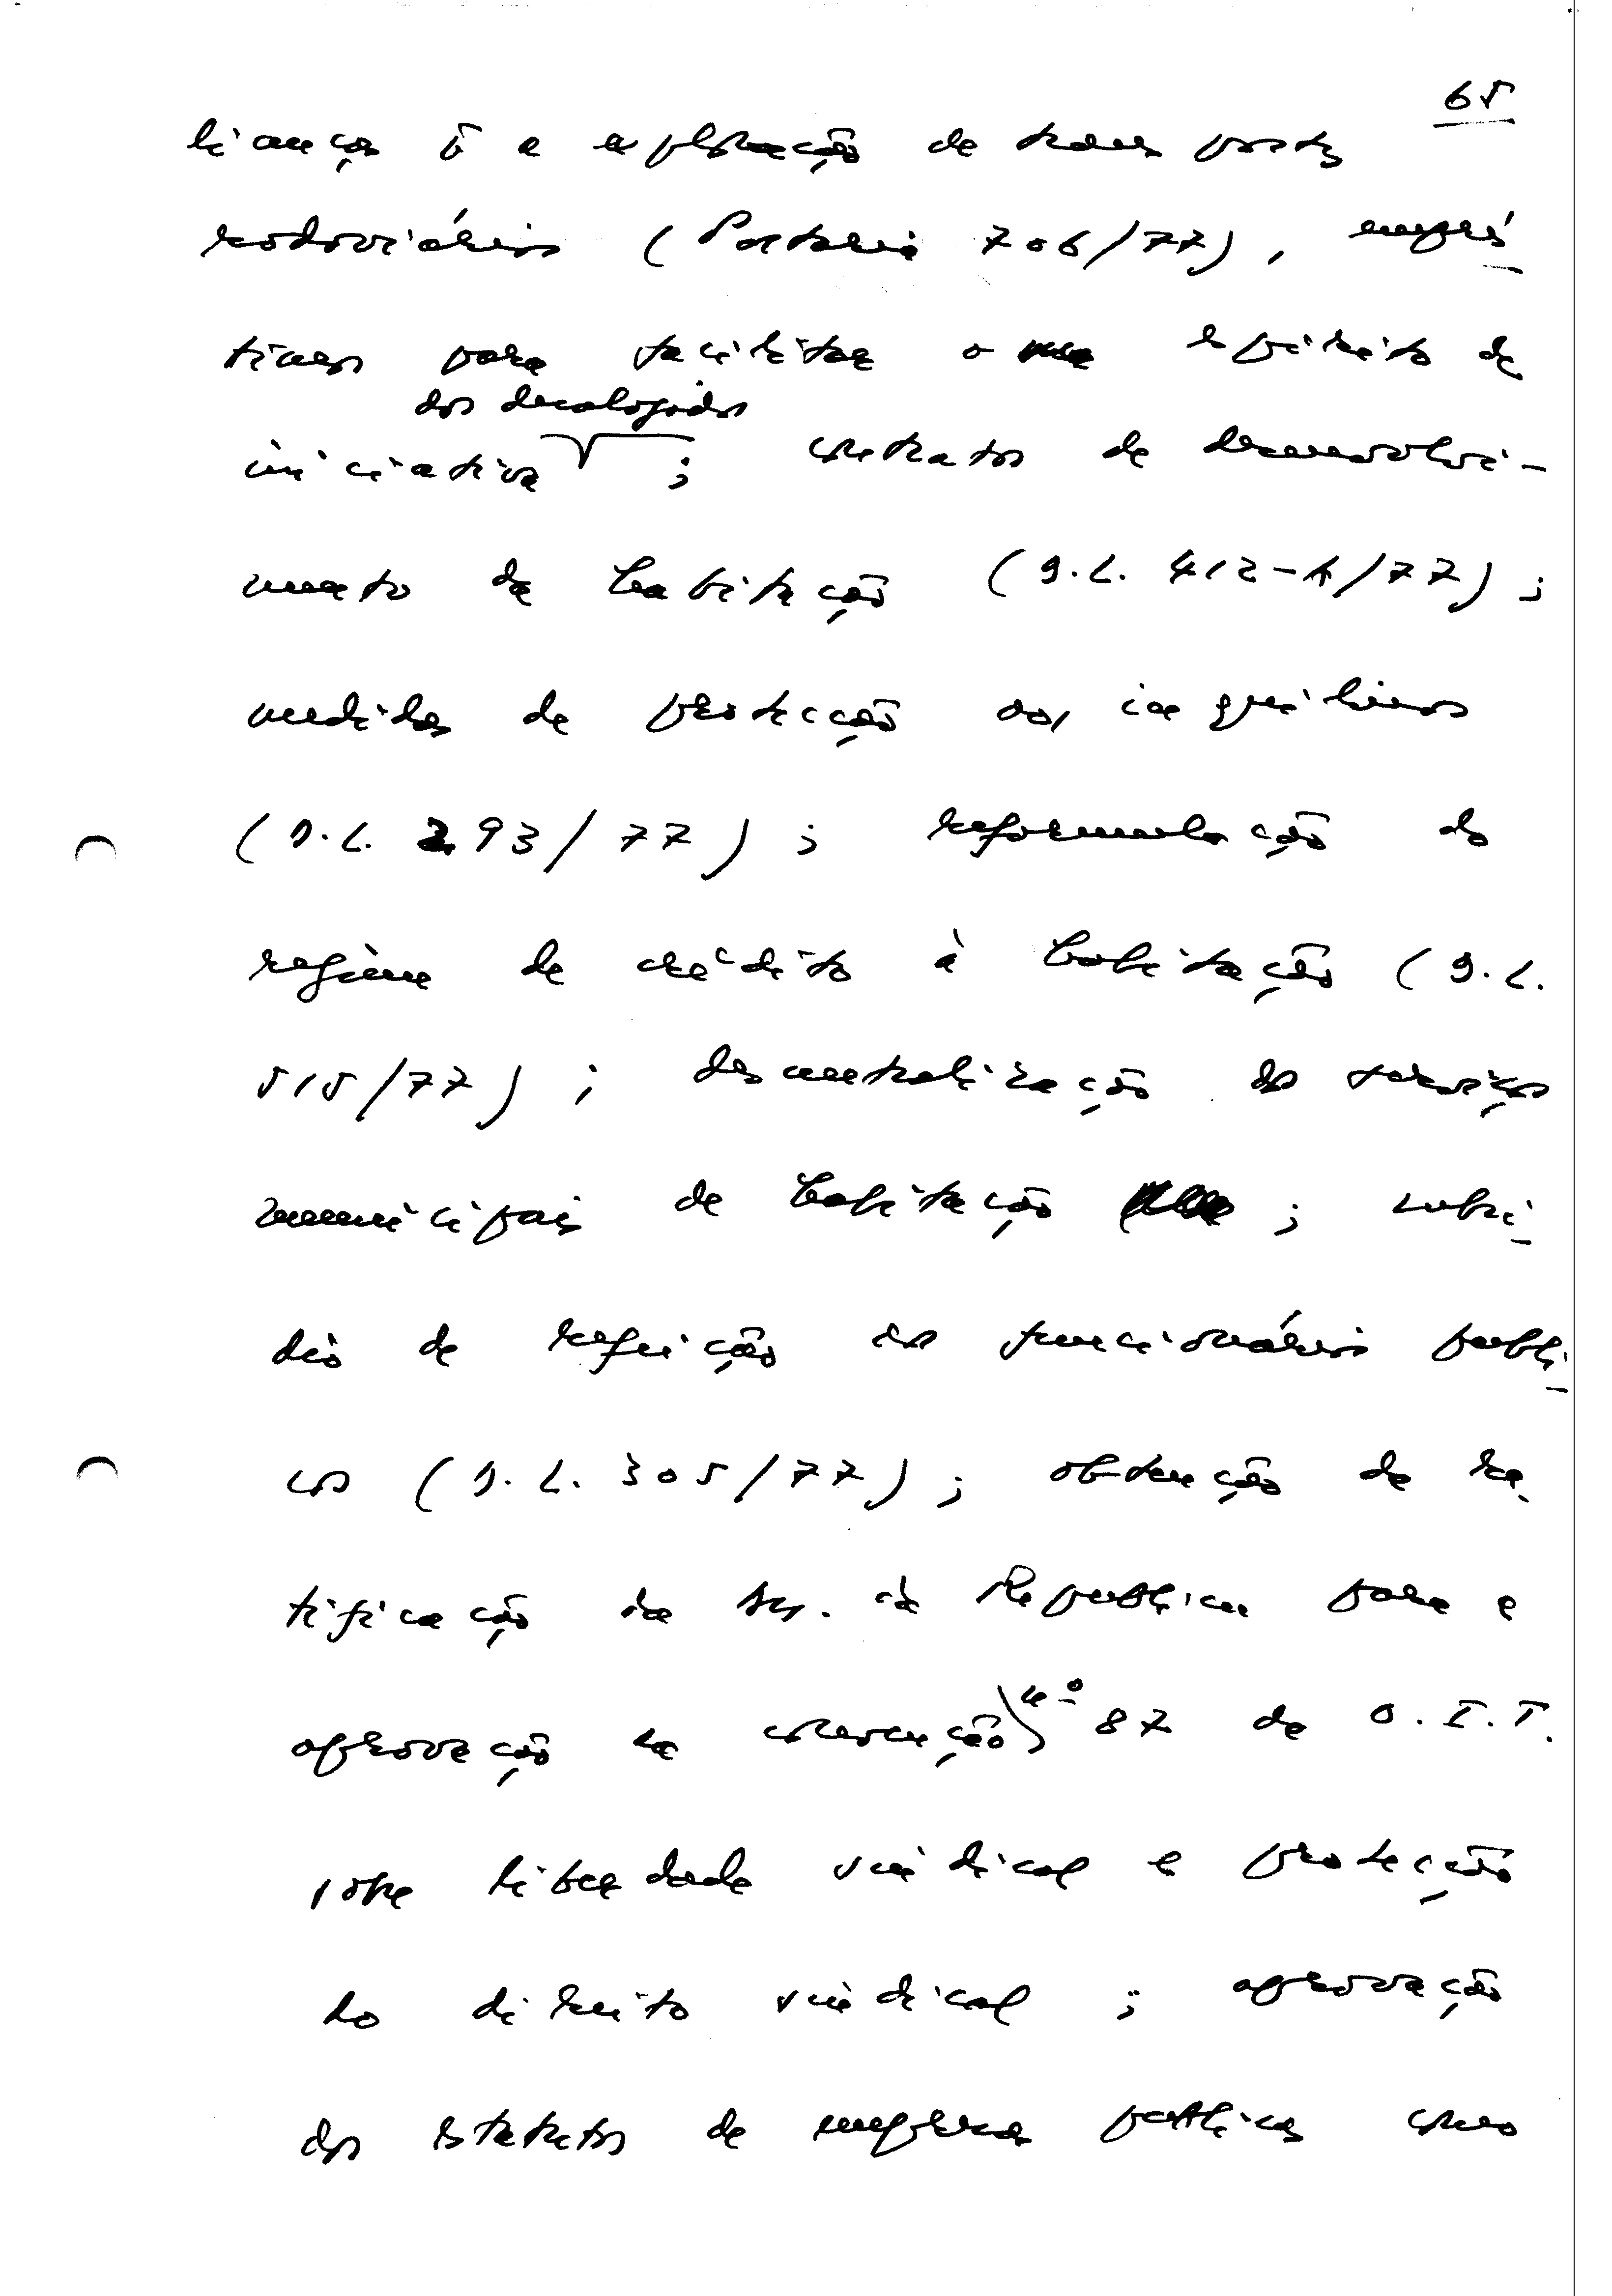 65
lianças p̄ a exploração de transportes
rodoviários (Portaria 706/77), emprés-
timos para facilitar o espírito de
dos desalojados
iniciativa ; contratos de desenvolvi-
mento da habitação (D.L. 412-A/77) ;
medidas de protecção aos inquilinos
(D.L. 293/77) ; reformulação do
regime de crédito à habitação (D.L.
515/77) ; descentralização dos serviços
municipais de habitação ; subsí-
dio de refeição aos funcionários públi-
cos (D.L. 305/77) ; obtenção da ra-
tificação da Ass. da República para a
aprovação da convenção nº 87 da O.I.T.
sobre liberdade sindical e proteção
do direito sindical ; aprovação
dos estatutos de empresas públicas como